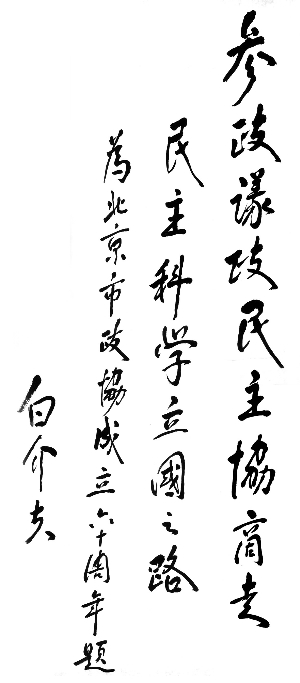 参政議政民主協商走
民主科学立國之路
為北京市政協成立六十周年題
白介夫